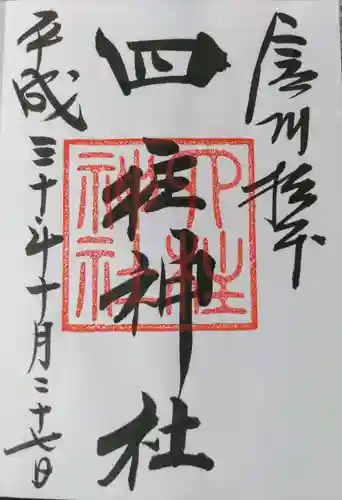 信州松本
四柱神社
四柱神社
平成三十年十月二十七日